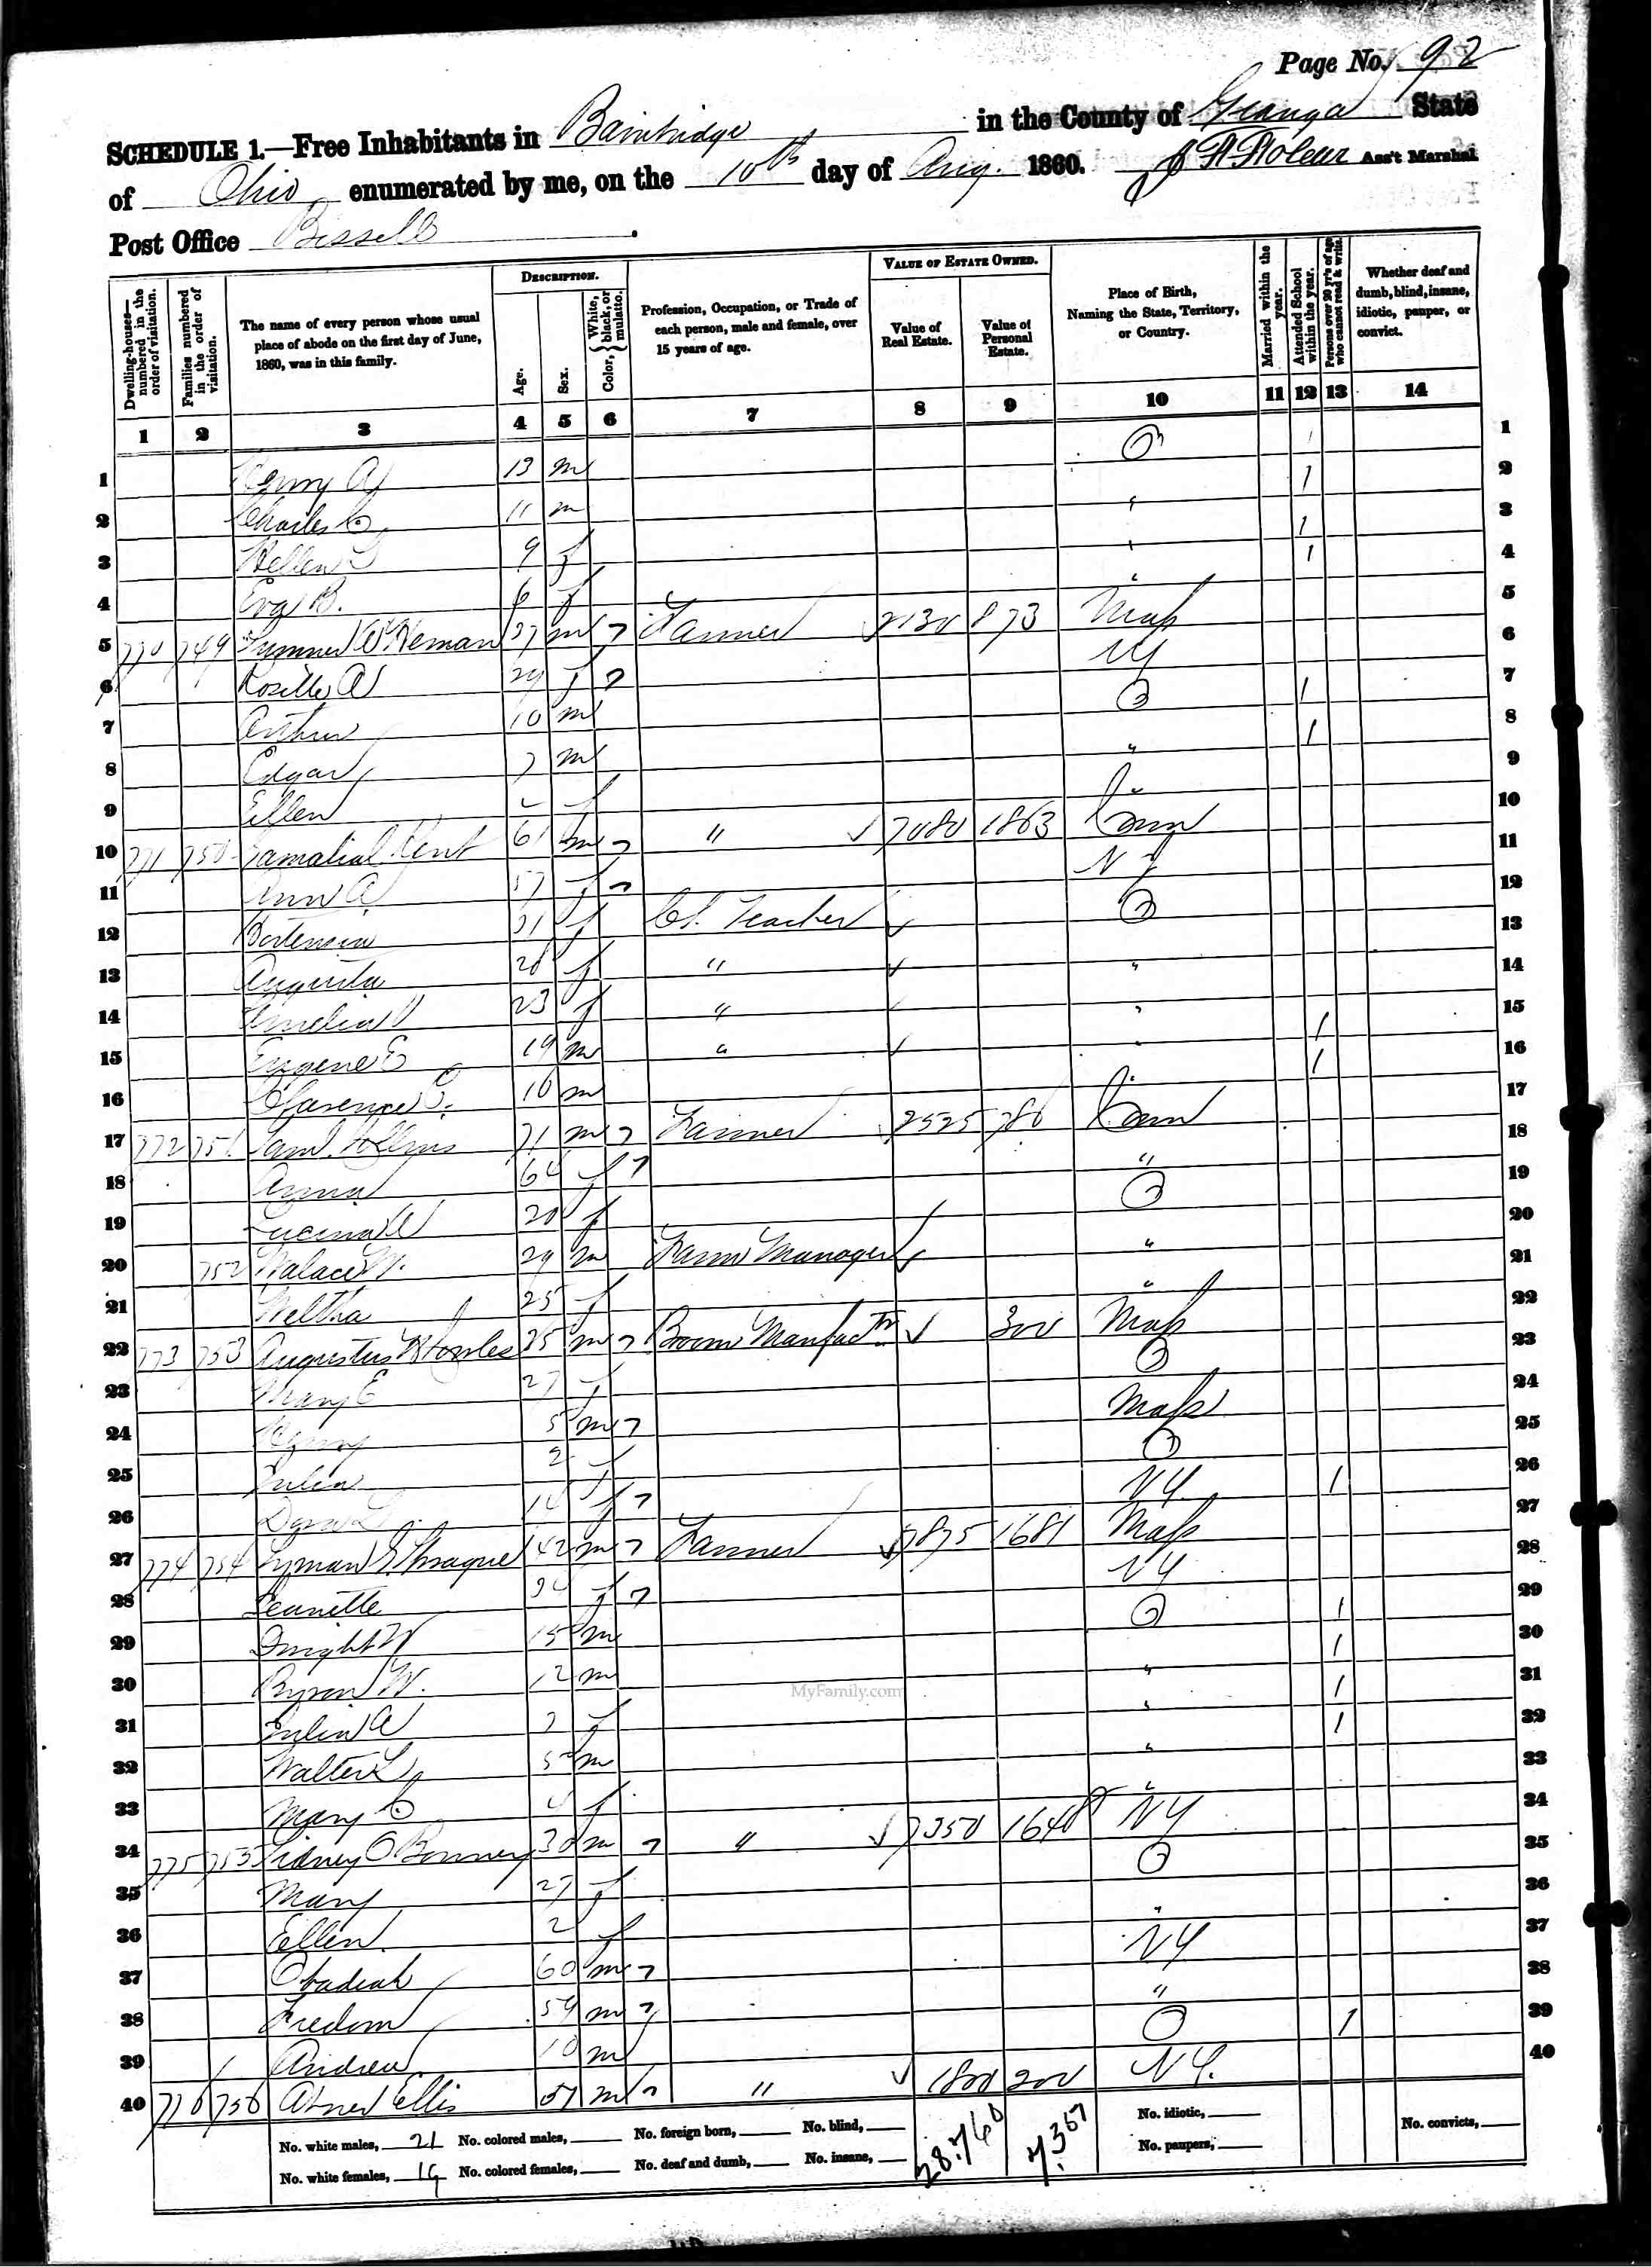 Page No. 92
SCHEDULE 1.—Free Inhabitants in Bainbridge in the County of Geauga State
of Ohio enumerated by me, on the 10th day of Aug. 1860. Ass't Marshal
Post Office Bissells
Dwelling-houses—numbered in the order of visitation.
Families numbered in the order of visitation.
The name of every person whose usual place of abode on the first day of June, 1860, was in this family.
DESCRIPTION.
Age.
Sex.
Color, { White, black, or mulatto.
Profession, Occupation, or Trade of each person, male and female, over 15 years of age.
VALUE OF ESTATE OWNED.
Value of Real Estate.
Value of Personal Estate.
Place of Birth, Naming the State, Territory, or Country.
Married within the year.
Attended School within the year.
Persons over 20 y'rs of age who cannot read & write.
Whether deaf and dumb, blind, insane, idiotic, pauper, or convict.
1 2 3 4 5 6 7 8 9 10 11 12 13 14
1 Henry A 13 m O 1 1
2 Charles C. 11 m " 1 2
3 Hellen 9 f " 1 3
4 Eva B. 6 f " 1 4
5 770 749 Heman 37 m Farmer 2130 873 Mass 5
6 Rosilla A 29 f NY 6
7 Arthur 10 m O 1 7
8 Edgar 7 m " 1 8
9 Ellen f " 9
10 771 750 Gamalial Kent 61 m " 7080 1863 Conn 10
11 Ann A. 57 f 11
12 31 f C.S. Teacher O 12
13 Augusta 26 f " " 13
14 Amelia 23 f " " 14
15 Eugene E 19 m " " 1 15
16 Clarence C. 16 m " 1 16
17 772 751 71 m Farmer 2525 786 Conn 17
18 Anna 64 f " 18
19 Lucina 20 f O 19
20 752 Walace W. 29 m Farm Manager " 20
21 Weltha 25 f " 21
22 773 753 Augustus 35 m Broom Manfactr 300 Mass 22
23 Mary E 27 f O 23
24 Henry 5 m Mass 24
25 Julia 2 f O 25
26 Dora L. 14 f NY. 1 26
27 774 754 Lyman Sprague 42 m Farmer 7875 1681 Mass 27
28 Jeanette 34 f NY 28
29 Dwight W 15 m O 1 29
30 Byron W. 12 m " 1 30
31 Julia A 7 f " 1 31
32 Walter L 5 m " 1 32
33 Mary C 4 f " 33
34 775 755 Sidney O Bonney 30 m " 7350 1640 NY 34
35 Mary 27 f O 35
36 Ellen. 2 f " 36
37 Obadiah 60 m NY 37
38 Freedom 54 m " 38
39 Andrew 10 m O 1 39
40 776 756 Abner Ellis 51 m " 1800 200 NY. 40
No. white males, 21 No. colored males, No. foreign born, No. blind, 28.760 7.367 No. idiotic, No. convicts,
No. white females, 19 No. colored females, No. deaf and dumb, No. insane, No. paupers,
MyFamily.com